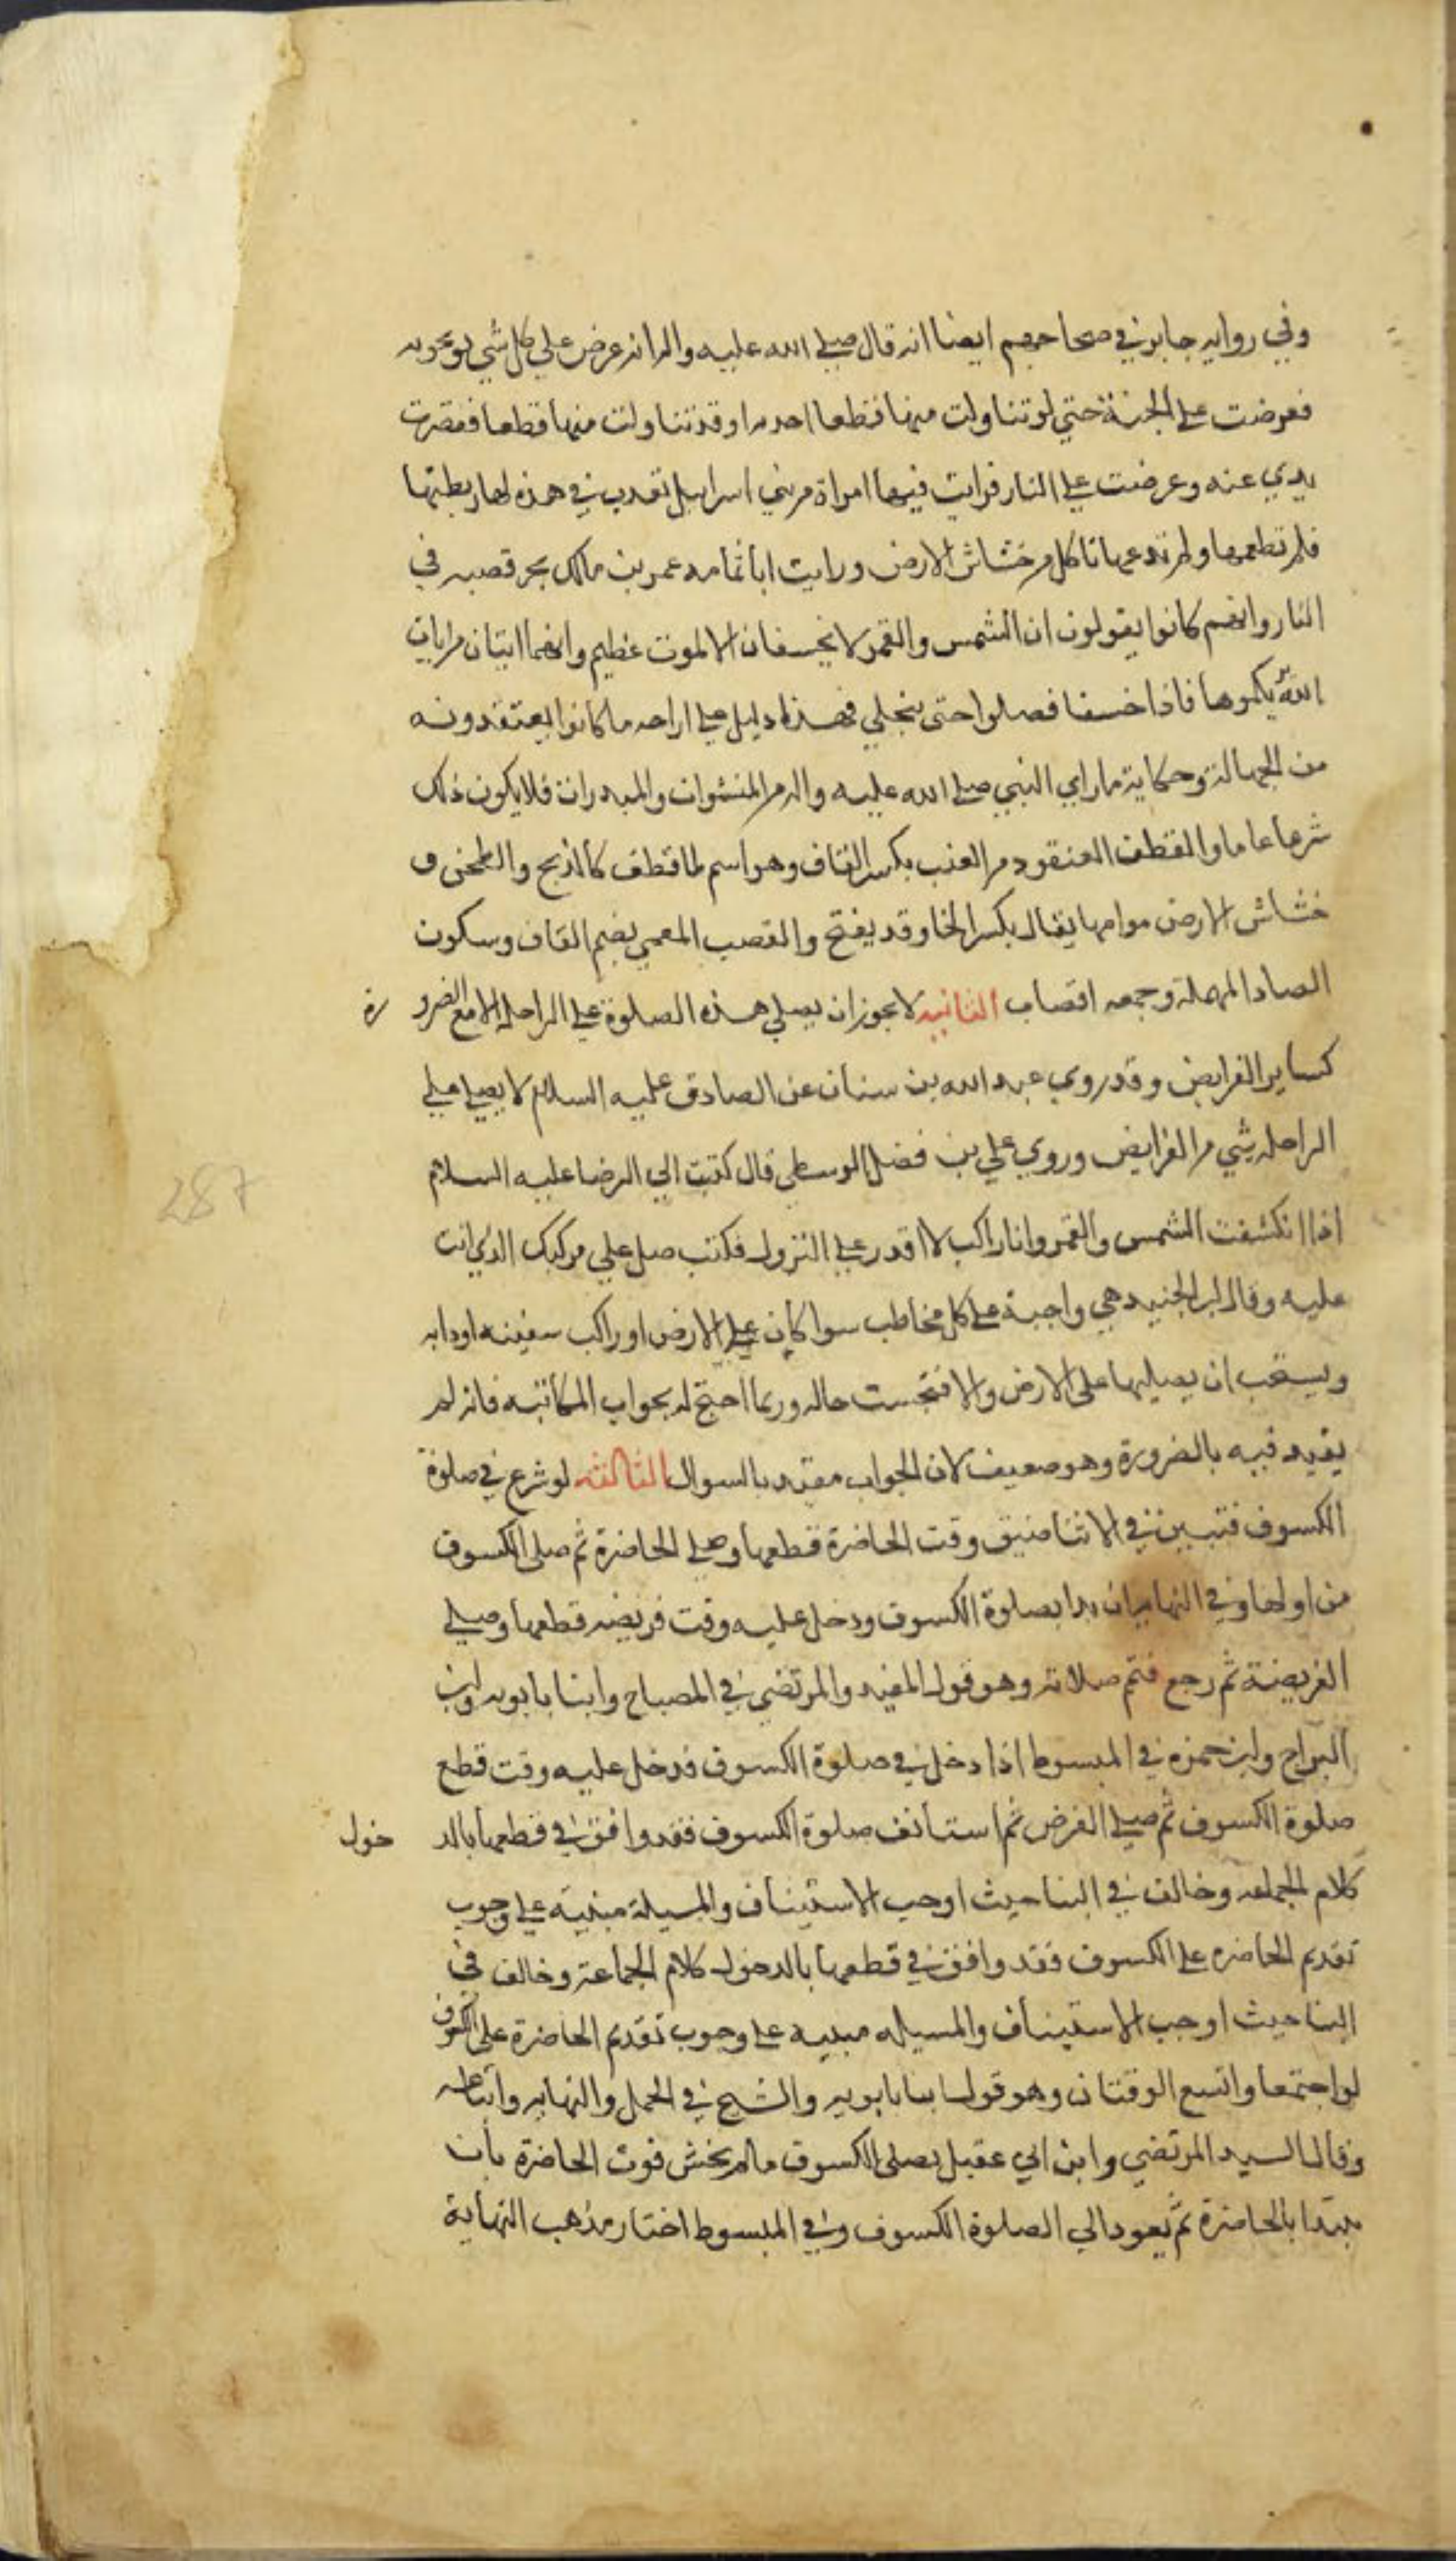 وفي رواية جابر في صحاحهم ايضا انه قال صلى الله عليه واله انه عرض علي كل شي توعدونه
فعرضت علي الجنة حتي لو تناولت منها قطفا اخذته او قد تناولت منها قطفا فقصرت
يدي عنه وعرضت علي النار فرايت فيها امراة من بني اسرايل تعذب في هرة لها ربطتها
فلم تطعمها ولم تدعها تاكل من خشاش الارض ورايت ابا ثمامه عمر بن مالك يجر قصبه في
النار وانهم كانوا يقولون ان الشمس والقمر لا يخسفان الا لموت عظيم وانهما ايتان من ايات
الله يريكموها فاذا خسفا فصلوا حتى ينجلي فهذا دليل علي ازاحه ما كانوا يعتقدونه
من الجهالة وحكاية ما راي النبي صلي الله عليه واله من المنشوات والمبدرات فلا يكون ذلك
شرعا عاما والقطف العنقود من العنب بكسر القاف وهو اسم لما قطف كالذبح والطحن و
خشاش الارض هوامها يقال بكسر الخا وقد يفتح والقصب المعي بضم القاف وسكون
الصاد المهملة وجمعه اقصاب الثانيه لا يجوز ان يصلي هذه الصلوة علي الراحله الا مع الضرو رة
كساير الفرايض وقد روي عبد الله بن سنان عن الصادق عليه السلام لا يصلي علي
الراحله شي من الفرايض وروي علي بن فضل الوسطي قال كتبت الي الرضا عليه السلام
اذا انكشفت الشمس والقمر وانا راكب لا اقدر علي النزول فكتب صل علي مركبك الذي انت
عليه وقال ابن الجنيد هي واجبة علي كل مخاطب سوا كان علي الارض او راكب سفينه او دابه
ويستحب ان يصليها على الارض والا فتجست حاله وربما احتج له بجواب المكاتبه فانه لم
يقيد فيه بالضرورة وهو ضعيف لان الجواب مقيد بالسوال الثالثه لو شرع في صلوة
الكسوف فتبين في الاثنا ضيق وقت الحاضرة قطعها وصلي الحاضرة ثم صلى الكسوف
من اولها وفي النهايه ان بدا بصلوة الكسوف ودخل عليه وقت فريضه قطعها وصلي
الفريضة ثم رجع فتم صلاته وهو قول المفيد والمرتضي في المصباح وابنا بابويه وابن
البراج وابن حمزه في المبسوط اذا دخل في صلوة الكسوف فدخل عليه وقت قطع
صلوة الكسوف ثم صلي الفرض ثم استانف صلوة الكسوف فقد وافق في قطعها بالد خول
كلام الجماعه وخالف في البنا حيث اوجب الاستيناف والمسيلة مبنيه علي وجوب
تقديم الحاضره علي الكسوف فقد وافق في قطعها بالدخول كلام الجماعة وخالف في
البنا حيث اوجب الاستيناف والمسيله مبنيه علي وجوب تقديم الحاضرة على الكسوف
لو اجتمعا واتسع الوقتان وهو قول ابنا بابويه والشيخ في الجمل والنهايه واتباعه
وقال السيد المرتضي وابن ابي عقيل يصلى الكسوف ما لم يخش فوت الحاضرة بان
يبتدا بالحاضرة ثم يعود الي الصلوة الكسوف وفي المبسوط اختار مذهب النهاية
287